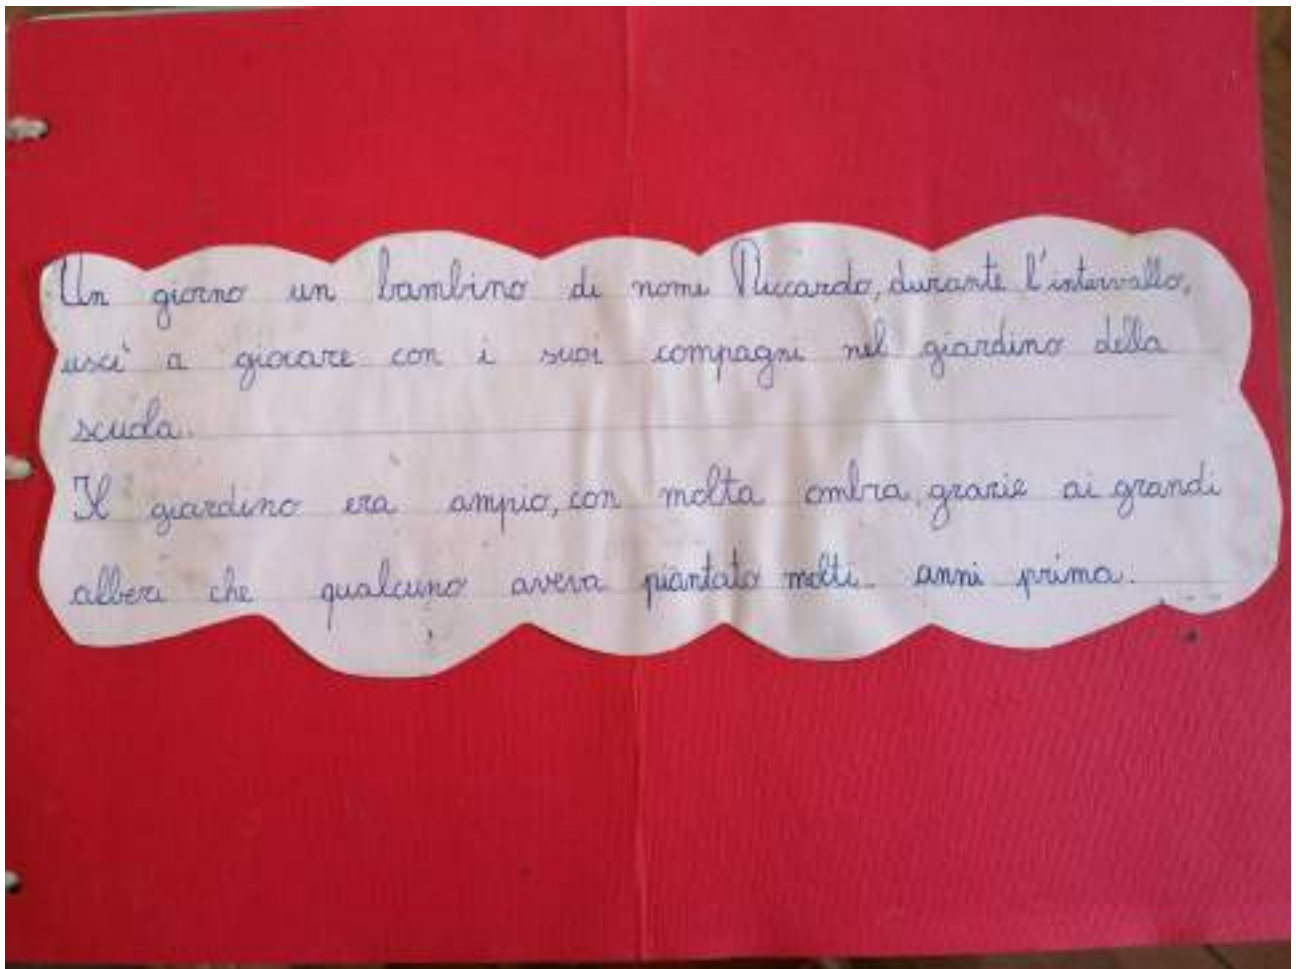 Un giorno un bambino di nome Riccardo, durante l'intervallo,
uscì a giocare con i suoi compagni nel giardino della
scuola.
Il giardino era ampio, con molta ombra, grazie ai grandi
alberi che qualcuno aveva piantato molti anni prima.